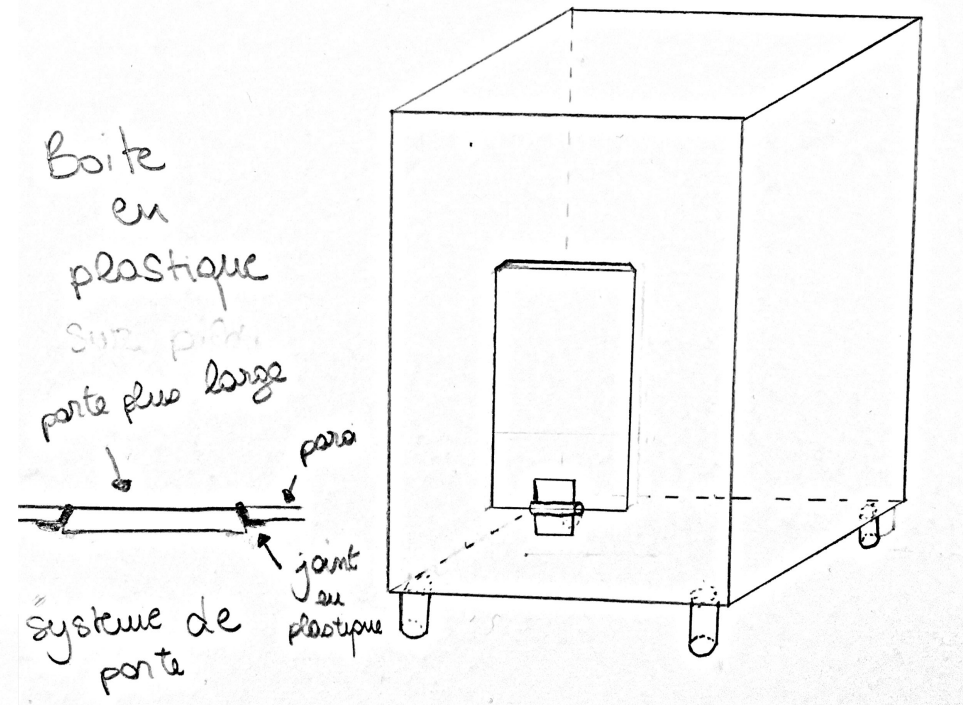 Boite
en
plastique
sur
porte plus large
paroi
joint
en
plastique
systeme de
porte